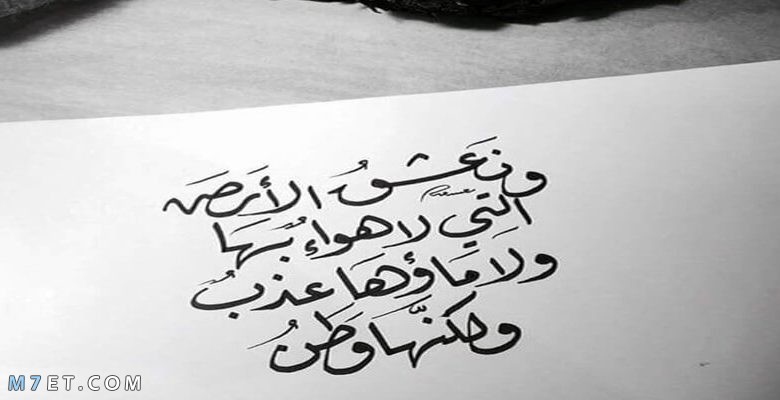 ونَعشقُ الأرضَ
التي لا هواءُ بهَا
ولا مَاؤهَا عذبُ
ولكنّهَا وَطَنُ
M7ET.COM